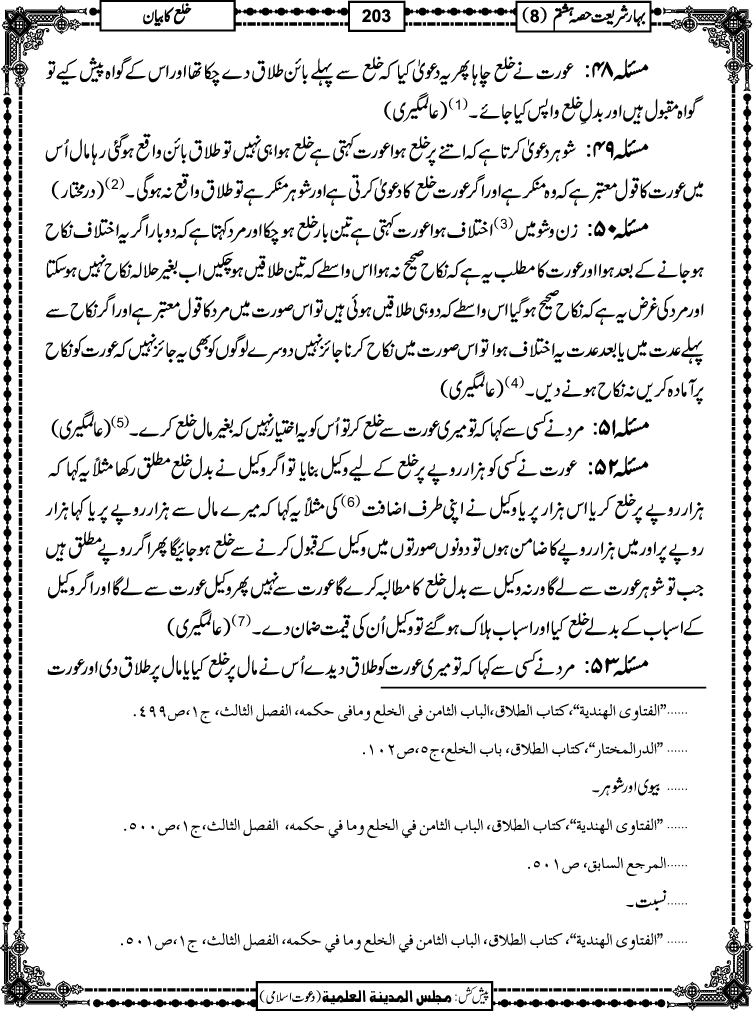 بہارِ شریعت حصہ ہشتم (8)
203
خلع کا بیان
مسئلہ ۴۸: عورت نے خلع چاہا پھر یہ دعویٰ کیا کہ خلع سے پہلے بائن طلاق دے چکا تھا اور اس کے گواہ پیش کیے تو
گواہ مقبول ہیں اور بدلِ خلع واپس کیا جائے۔ (1) (عالمگیری)
مسئلہ ۴۹: شوہر دعویٰ کرتا ہے کہ اتنے پر خلع ہوا عورت کہتی ہے خلع ہوا ہی نہیں تو طلاق بائن واقع ہوگئی رہا مال اُس
میں عورت کا قول معتبر ہے کہ وہ منکر ہے اور اگر عورت خلع کا دعویٰ کرتی ہے اور شوہر منکر ہے تو طلاق واقع نہ ہوگی۔ (2) (درمختار)
مسئلہ ۵۰: زن و شو میں (3) اختلاف ہوا عورت کہتی ہے تین بار خلع ہو چکا اور مرد کہتا ہے کہ دو بار اگر یہ اختلاف نکاح
ہو جانے کے بعد ہوا اور عورت کا مطلب یہ ہے کہ نکاح صحیح نہ ہوا اس واسطے کہ تین طلاقیں ہو چکیں اب بغیر حلالہ نکاح نہیں ہو سکتا
اور مرد کی غرض یہ ہے کہ نکاح صحیح ہو گیا اس واسطے کہ دو ہی طلاقیں ہوئی ہیں تو اس صورت میں مرد کا قول معتبر ہے اور اگر نکاح سے
پہلے عدت میں یا بعد عدت یہ اختلاف ہوا تو اس صورت میں نکاح کرنا جائز نہیں دوسرے لوگوں کو بھی یہ جائز نہیں کہ عورت کو نکاح
پر آمادہ کریں نہ نکاح ہونے دیں۔ (4) (عالمگیری)
مسئلہ ۵۱: مرد نے کسی سے کہا کہ تو میری عورت سے خلع کر تو اُس کو یہ اختیار نہیں کہ بغیر مال خلع کرے۔ (5) (عالمگیری)
مسئلہ ۵۲: عورت نے کسی کو ہزار روپے پر خلع کے لیے وکیل بنایا تو اگر وکیل نے بدل خلع مطلق رکھا مثلاً یہ کہا کہ
ہزار روپے پر خلع کر یا اس ہزار پر یا وکیل نے اپنی طرف اضافت (6) کی مثلاً یہ کہا کہ میرے مال سے ہزار روپے پر یا کہا ہزار
روپے پر اور میں ہزار روپے کا ضامن ہوں تو دونوں صورتوں میں وکیل کے قبول کرنے سے خلع ہو جائیگا پھر اگر روپے مطلق ہیں
جب تو شوہر عورت سے لے گا ورنہ وکیل سے بدل خلع کا مطالبہ کرے گا عورت سے نہیں پھر وکیل عورت سے لے گا اور اگر وکیل
کے اسباب کے بدلے خلع کیا اور اسباب ہلاک ہو گئے تو وکیل اُن کی قیمت ضمان دے۔ (7) (عالمگیری)
مسئلہ ۵۳: مرد نے کسی سے کہا کہ تو میری عورت کو طلاق دیدے اُس نے مال پر خلع کیا یا مال پر طلاق دی اور عورت
......”الفتاوى الهندية“،كتاب الطلاق،الباب الثامن فى الخلع ومافى حكمه، الفصل الثالث، ج١،ص٤٩٩.
...... ”الدرالمختار“،كتاب الطلاق، باب الخلع،ج٥،ص١٠٢.
...... بیوی اور شوہر۔
...... ”الفتاوى الهندية“،كتاب الطلاق، الباب الثامن في الخلع وما في حكمه، الفصل الثالث،ج١،ص٥٠٠.
......المرجع السابق، ص٥٠١.
......نسبت۔
...... ”الفتاوى الهندية“، كتاب الطلاق، الباب الثامن في الخلع و ما في حكمه، الفصل الثالث، ج١،ص٥٠١.
پیش کش: مجلس المدینة العلمیة (دعوت اسلامی)